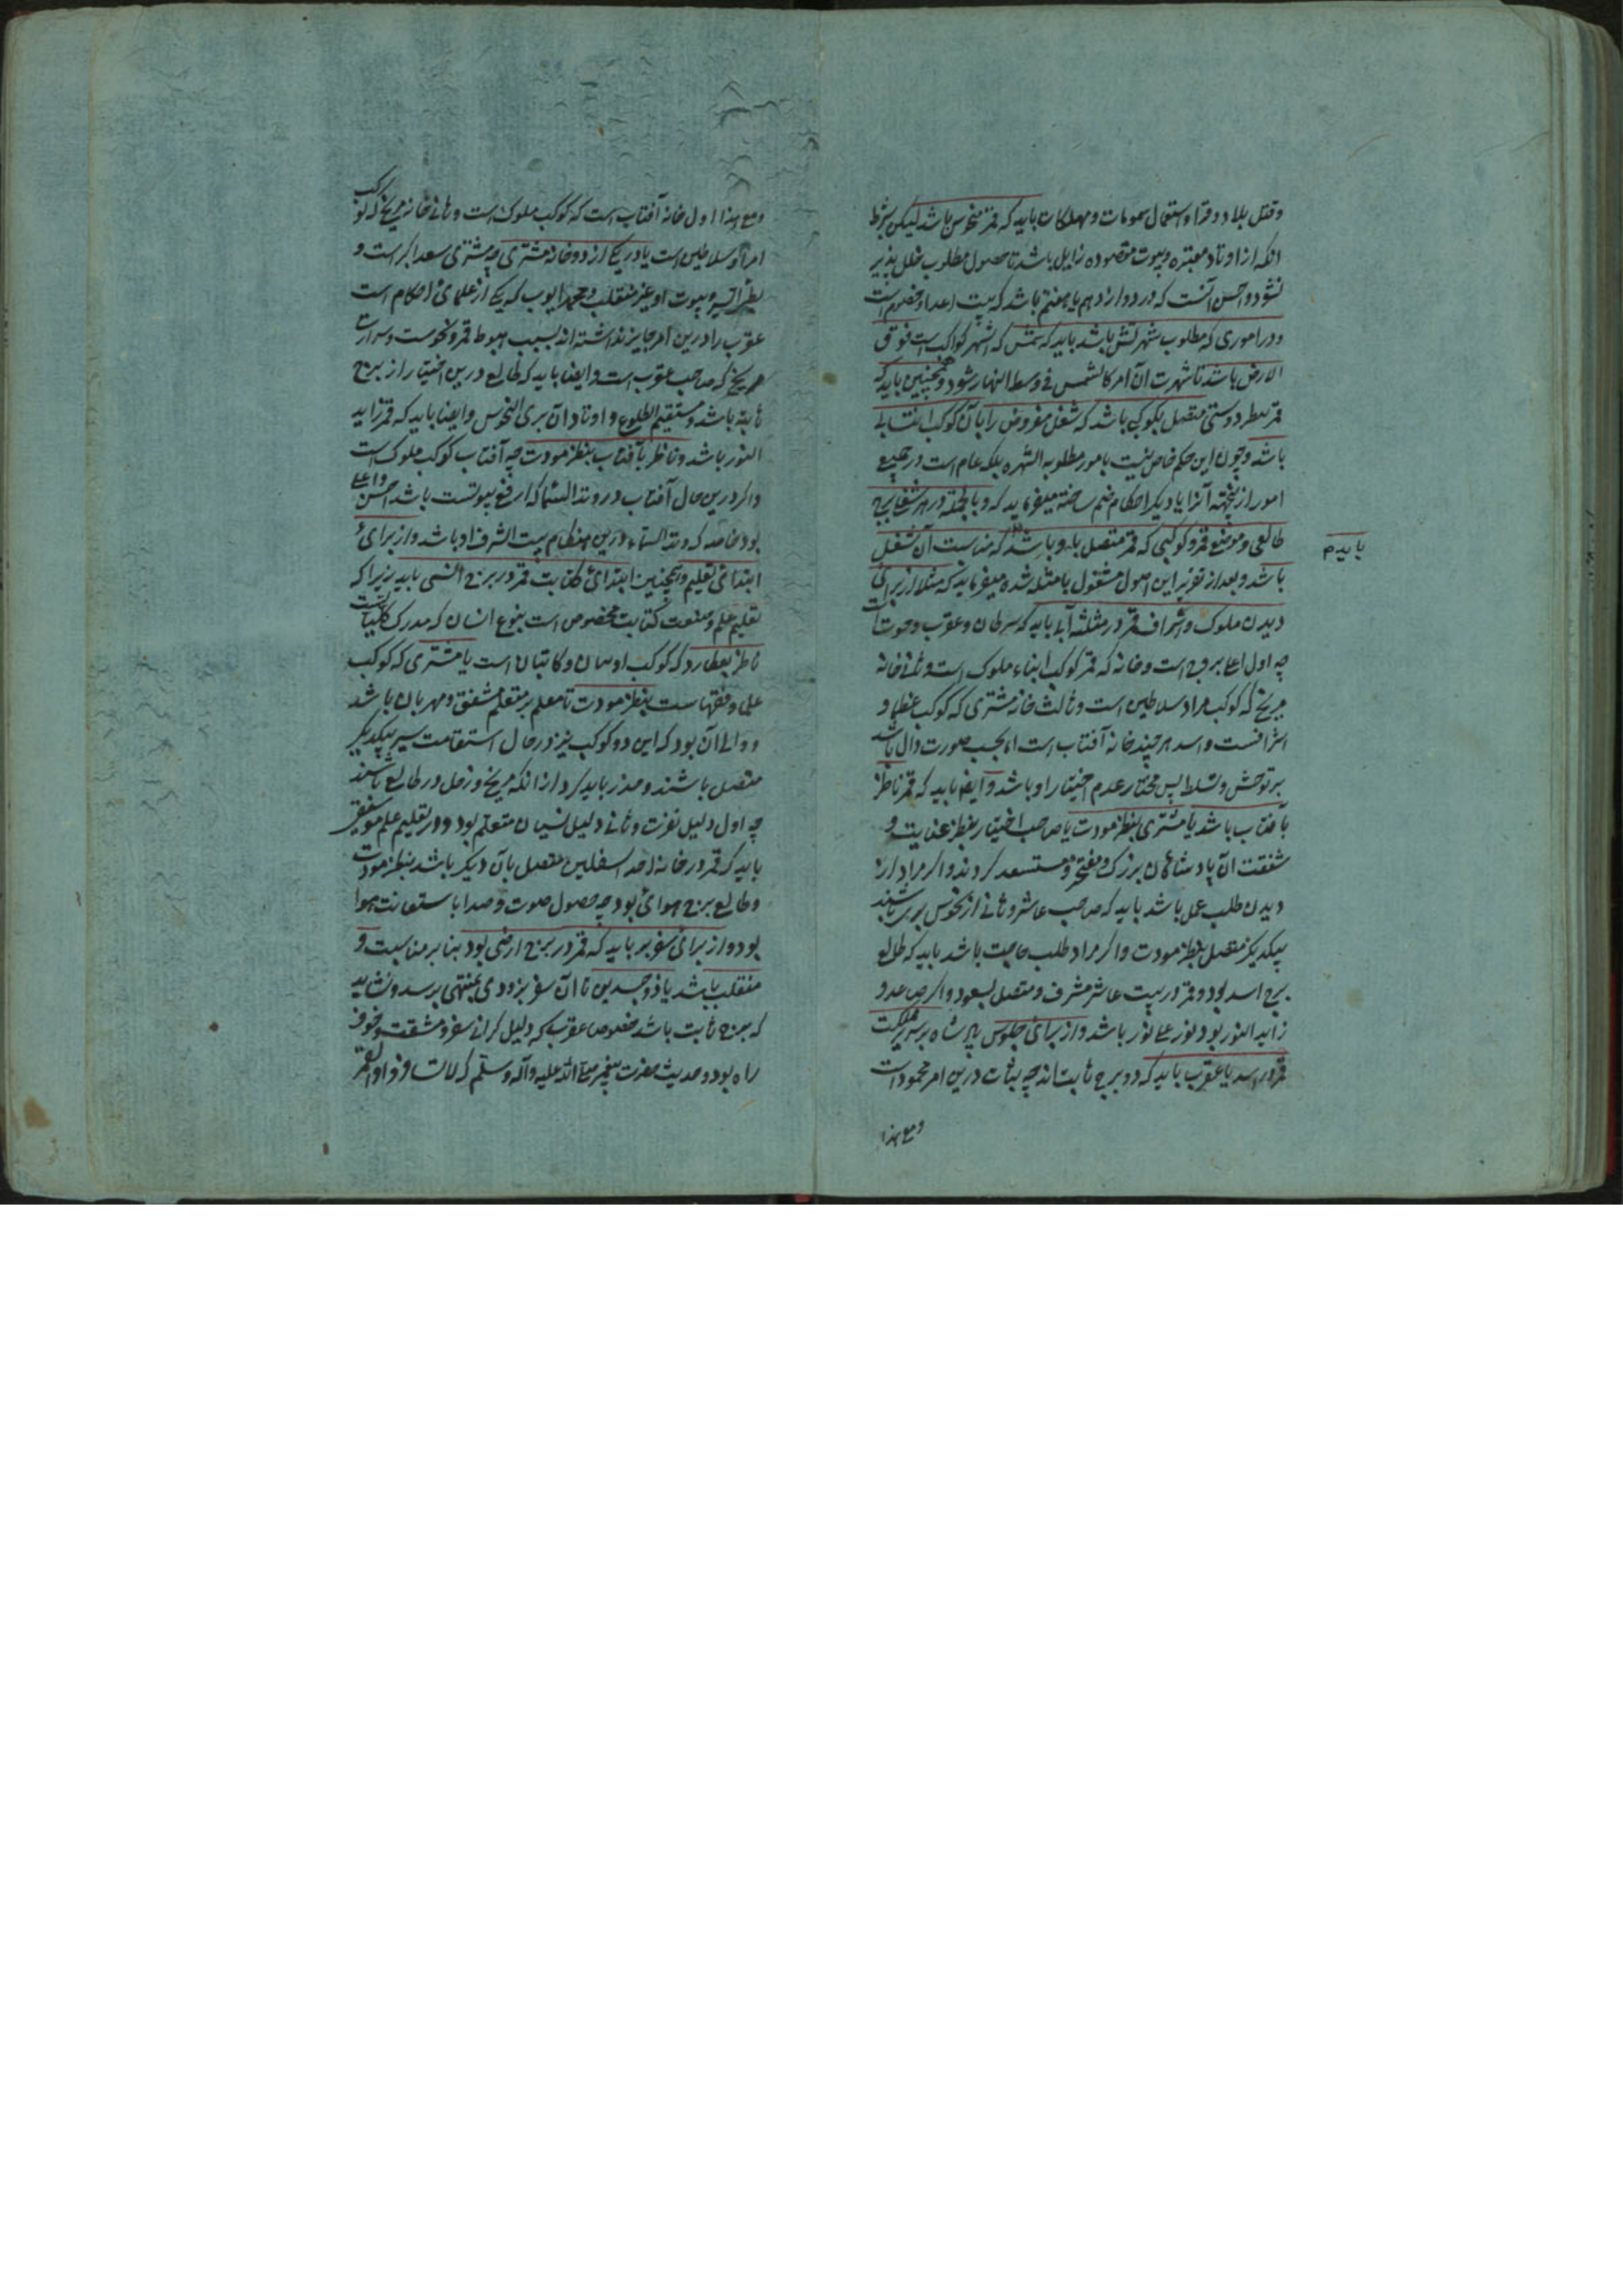 وقتل بلاد وقرا و استعمال سمومات و مهلکات باید که قمر منحوس باشد لیکن بشرط
انکه از اوتاد معتبره و بیوت مقصوده زایل باشد تا حصول مطلوب خلل پذیر
نشود و احسن آنست که در دوازدهم یا هفتم باشد که بیت اعدا و خصوم است
و در اموری که مطلوب شهرتش باشد باید که شمس که اشهر کواکب است فوق
الارض باشد تا شهرت آن امر کالشمس فی وسط النهار شود و همچنین باید که
قمر بنظر دوستی متصل بکوکبی باشد که شغل مفروض را بآن کوکب انتسابی
باشد و چون این حکم خاص نیست بامور مطلوبه الشهره بلکه عام است در جمیع
امور از نجهته آنرا با دیکر احکام ضم ساخته میفرماید که و بالجمله در هر شغلی برج
طالعی و موضع قمر و کوکبی که قمر متصل بدو باشد که مناسب آن شغل
بایدم
باشد و بعد از تقریر این اصول مشغول بامثله شده میفرماید که مثلا از برای
دیدن ملوک و اشراف قمر در مثلثه آبی باید که سرطان و عقرب و حوت است
چه اول اعلی بروج است و خانه که قمر کوکب ابناء ملوک است و ثانی خانه
مریخ که کوکب مراد سلاطین است و ثالث خانه مشتری که کوکب عظما و
اشرافست و اسد هر چند خانه آفتاب است اما بحسب صورت دال باشد
بر توحش و تسلط پس مختار عدم اختیار او باشد و ایضا باید که قمر ناظر
بآفتاب باشد یا مشتری بنظر مودت یا صاحب اختیار بنظر عنایت و
شفقت آن پادشاهان بزرک و مفتخر و مستسعد کردند و اکر مراد از
دیدن طلب عمل باشد باید که صاحب عاشر و ثانی از نحوس بری باشند
بیکدیکر متصل بنظر مودت و اکر مراد طلب حاجت باشد باید که طالع
برج اسد بود و قمر در بیت عاشر مشرف و متصل بسعود و اکر صاعد و
زاید النور بود نور علی نور باشد و از برای جلوس پادشاه بر سریر مملکت
قمر در اسد یا عقرب باید که دو برج ثابت اند چه ثبات درین امر محمود است
و مع هذا
و مع هذا اول خانه آفتاب است که کوکب ملوک است و ثانی خانه مریخ که کوکب
امرا و سلاطین است یا در یکی از دو خانه مشتری چه مشتری سعد اکبر است و
بیوت او غیر منقلب و محمد ایوب که یکی از علمای احکام است
عقرب را درین امر جایز نداشته اند بسبب هبوط قمر و نحوست و شرارت
مریخ که صاحب عقرب است و ایضا باید که طالع درین اختیار از بروج
ثابته باشد و مستقیم الطلوع و اوتاد آن بری النحوس و ایضا باید که قمر زاید
النور باشد و ناظر بآفتاب بنظر مودت چه آفتاب کوکب ملوک است
و اکر درین حال آفتاب در وتد السما که ارفع بیوتست باشد احسن و اعلی
بود خاصه که وتد السماء درین هنکام بیت الشرف او باشد و از برای
ابتدای تعلیم و همچنین ابتدای کتابت قمر در برج انسی باید زیرا که
تعلیم علم و صنعت کتابت مخصوص است بنوع انسان که مدرک کلیاتست
ناظر بعطارد که کوکب اوسان و کاتبان است یا مشتری که کوکب
علما و فقهاست بنظر مودت تا معلم بر متعلم مشفق و مهربان باشد
و اولی آن بود که این دو کوکب نیز در حال استقامت سیر بیکدیکر
متصل باشند و حذر باید کرد از انکه مریخ و زحل در طالع باشند
چه اول دلیل نفرت و ثانی دلیل نسیان متعلم بود و در تعلیم علم موسیقی
باید که قمر در خانه احد السفلیین متصل بآن دیکر باشد بنظر مودت
و طالع برج هوائی بود چه حصول صوت و صدا باستعانت هوا
بود و از برای سفر بر باید که قمر در برج ارضی بود بنا بر مناسبت و
منقلب باشد یا ذو جسدین تا آن سفر بزودی بمنتهی برسد و نشاید
که برج ثابت باشد خصوصا عقرب که دلیل کرانی سفر و مشقت و خوف
راه بود و حدیث حضرت پیغمبر صلی الله علیه و آله و سلم که لا تسافروا و القمر